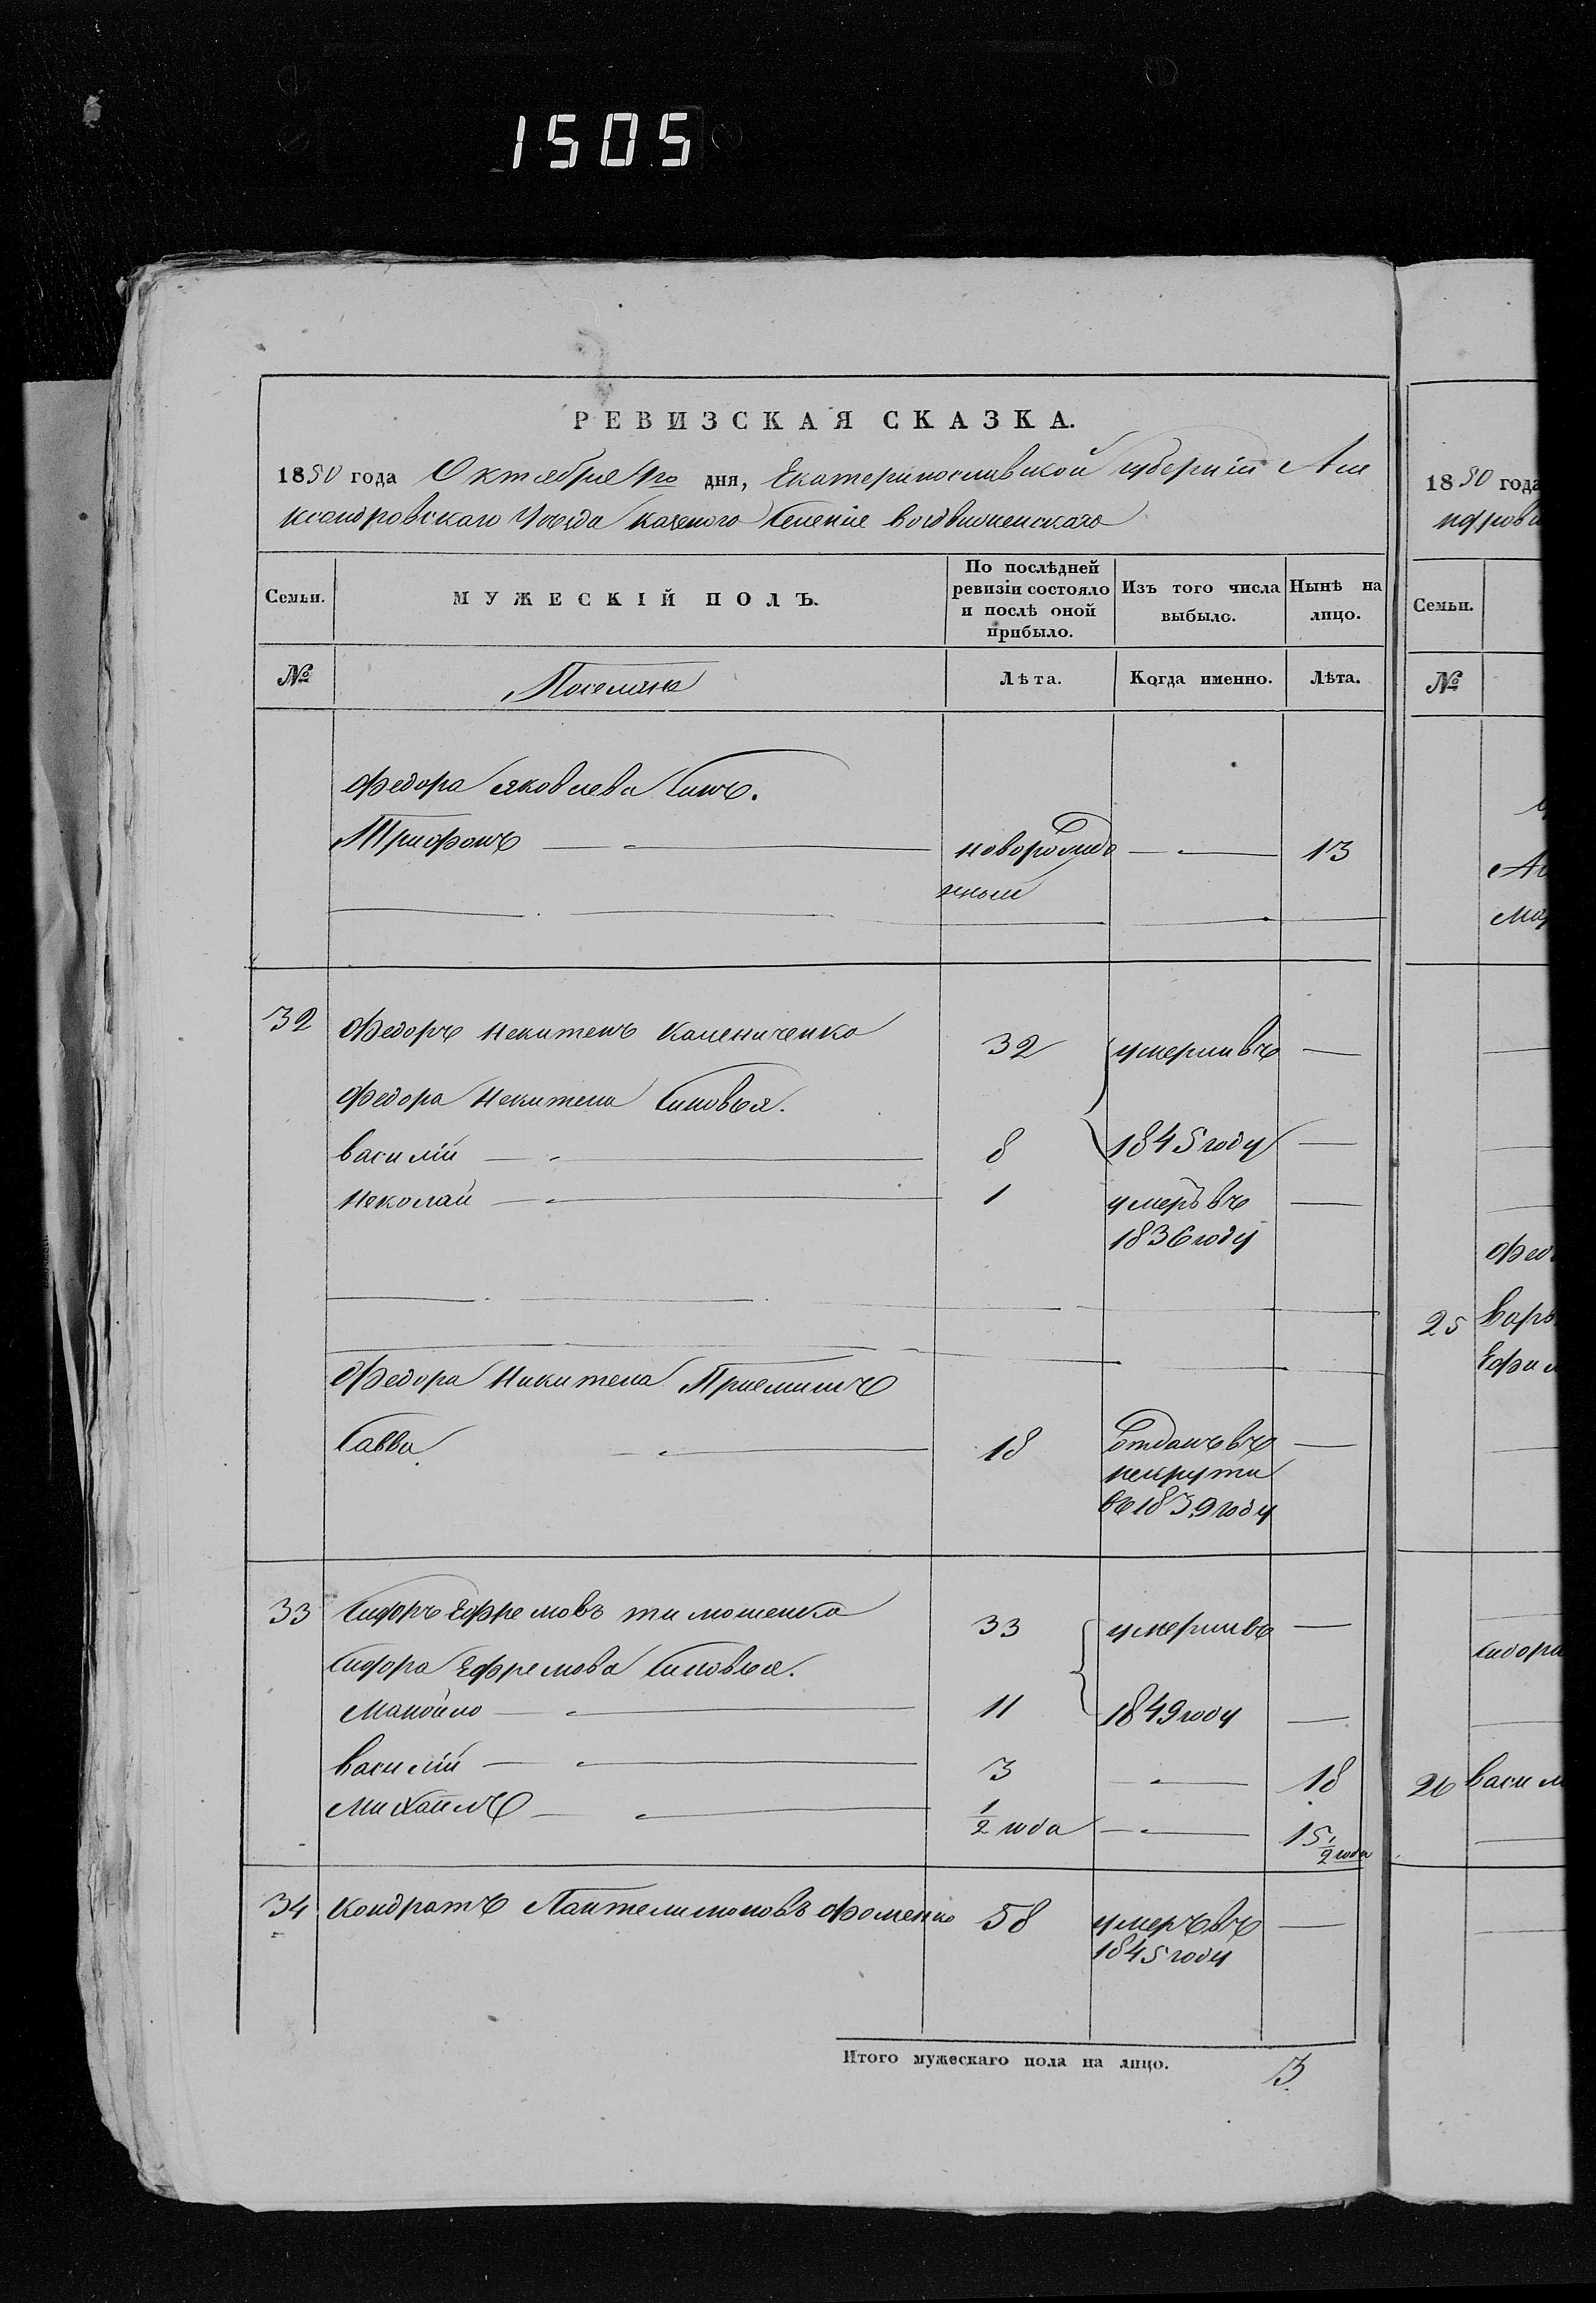 1505
РЕВИЗСКАЯ СКАЗКА.
1850 года Октября 9го дня, Екатеринославской губернiи Але
ксандровскаго Уезда казеного Селенiе воздвиженскаго
Семьи.
МУЖЕСКІЙ ПОЛЪ.
По послѣдней
ревизіи состояло
и послѣ оной
прибыло.
Изъ того числа
выбыло.
Нынѣ на
лицо.
№
Поселяне
Лѣта.
Когда именно.
Лѣта.
Федора яковлева Синъ.
Трифонъ — новорожде — 13
нный
32 Федоръ Некитенъ Калениченко 32 умерли въ —
Федора Некитена Сыновья.
василiй — 8 1845 году —
Неколай — 1 умеръ въ —
1836 году
Федора Никитена Приемишъ
Савва — 18 отданъ въ —
некруты
въ 1839 году
33 Сидоръ Ефремовъ тимошенко 33 умерли въ —
Сидора Ефремова Сыновья.
Манойло — 11 1849 году —
василiй — 3 — 18
Михаилъ — 1/2 года — 15 1/2 года
34 Кондратъ Пантелимоновъ Фоменко 58 умеръ въ —
1845 году
Итого мужескаго пола на лицо. 3.
1850 года
Семьи.
№
Мар
Фед
25 Варв
Ефим
Сидора
26 Васил